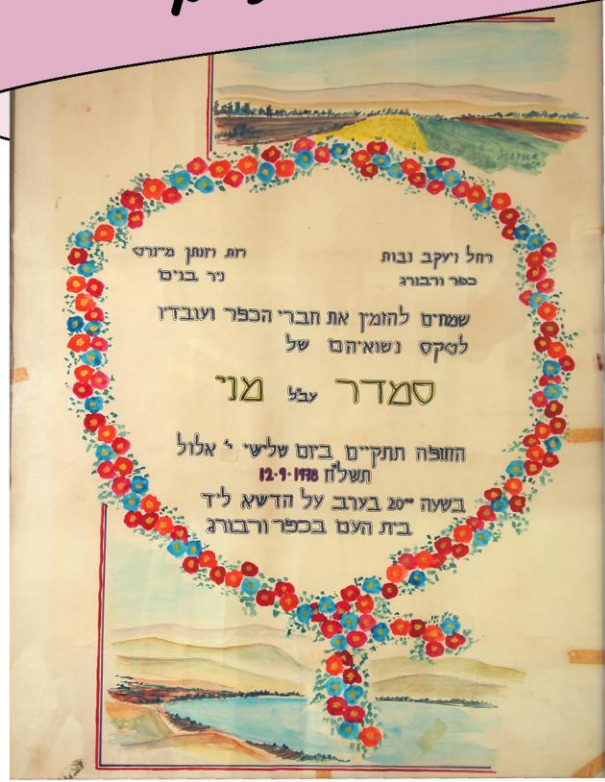 רחל ויעקב נבות
כפר ורבורג
רות ויונתן מיינרט
ניר בנים
שמחים להזמין את חברי הכפר ועובדיו
לטקס נשואיהם של
סמדר עב"ל מני
החופה תתקיים ביום שלישי י' אלול
תשל"ח 12.9.1978
בשעה 20⁰⁰ בערב על הדשא ליד
בית העם בכפר ורבורג